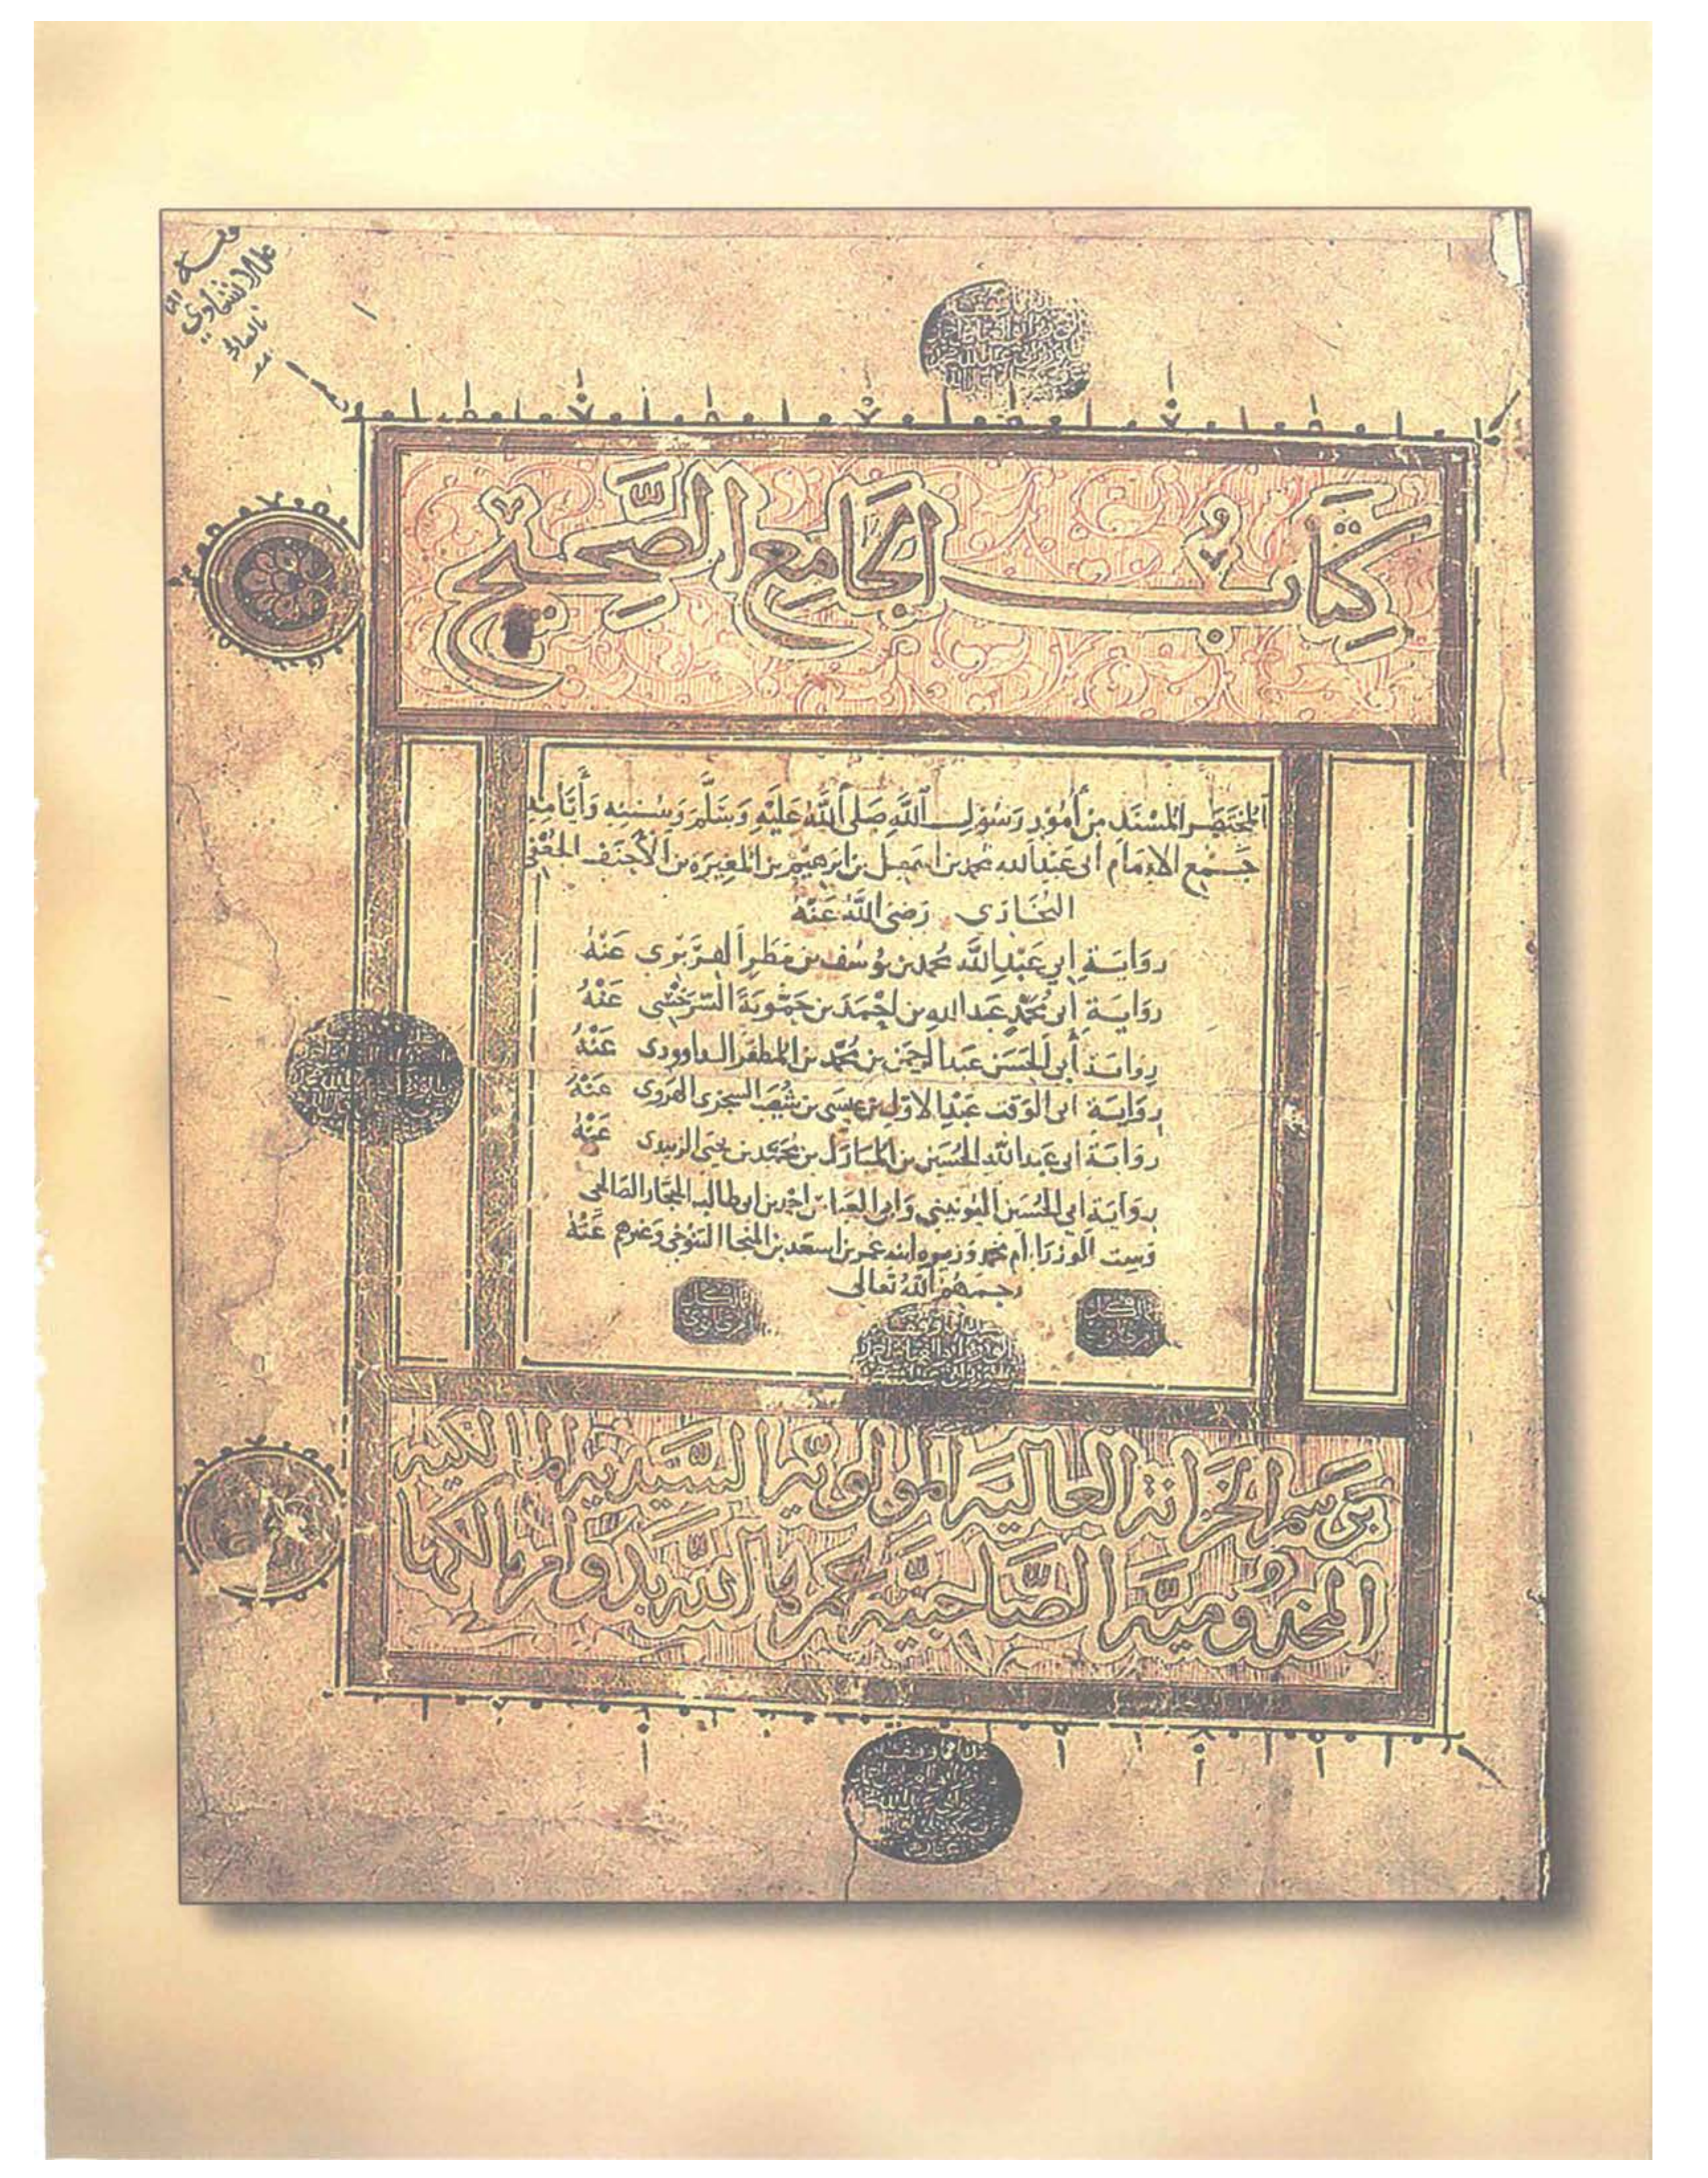 كِتَابُ الجَامِع الصَّحِيْح
المختصر المسْنَد مِن أمُوْر رَسُوْل اللَّه صَلى اللهُ عَليْهِ وَسَلَّمَ وَسُننه وَأيَّامِهِ
جَمْع الإمَام ابى عَبْد الله محمد بن اسمعيل بن ابرهيم بن المغِيرَة بن الأحنف الجُعْفى
البُخَارى رَضى اللهُ عَنْهُ
روَايَة ابى عَبْدِ اللَّه محمد بن يوُسُف بن مَطر الفرَبْرى عَنْهُ
روَايَة أبى محمَّد عَبد الله بن احْمَد بن حَمّوية السّرَخْسى عَنْهُ
روَايَة أبى الحسَن عبد الرحمن بن محمَّد بن المظفر الداوودى عَنْهُ
روَايَة ابى الوَقت عَبْد الاوّل بن عيسَى بن شعَيب السجزى الهَروى عَنْهُ
روَايَة ابى عَبد الله الحسَين بن المبَارَك بن محمَّد بن يحيَى الزبيدى عَنْهُ
روَايَة ابى الحسَين اليُونيني وَابى العبَاس احمد بن ابى طالب الحجَّار الصَالحى
وَست الوزرَاء ام محمد وَزيره ابنه عمر بن اسعَد بن المنجا التنوُخى وَغيرهم عَنْهُ
رحمهم اللهُ تعَالى
برَسْم الخزَانة العَاليَة الموْلويَّة السَّيّديّة المَالكيَّة
المخدُوميَّة الصَّاحبيَّة عمرهَا الله بدوَام